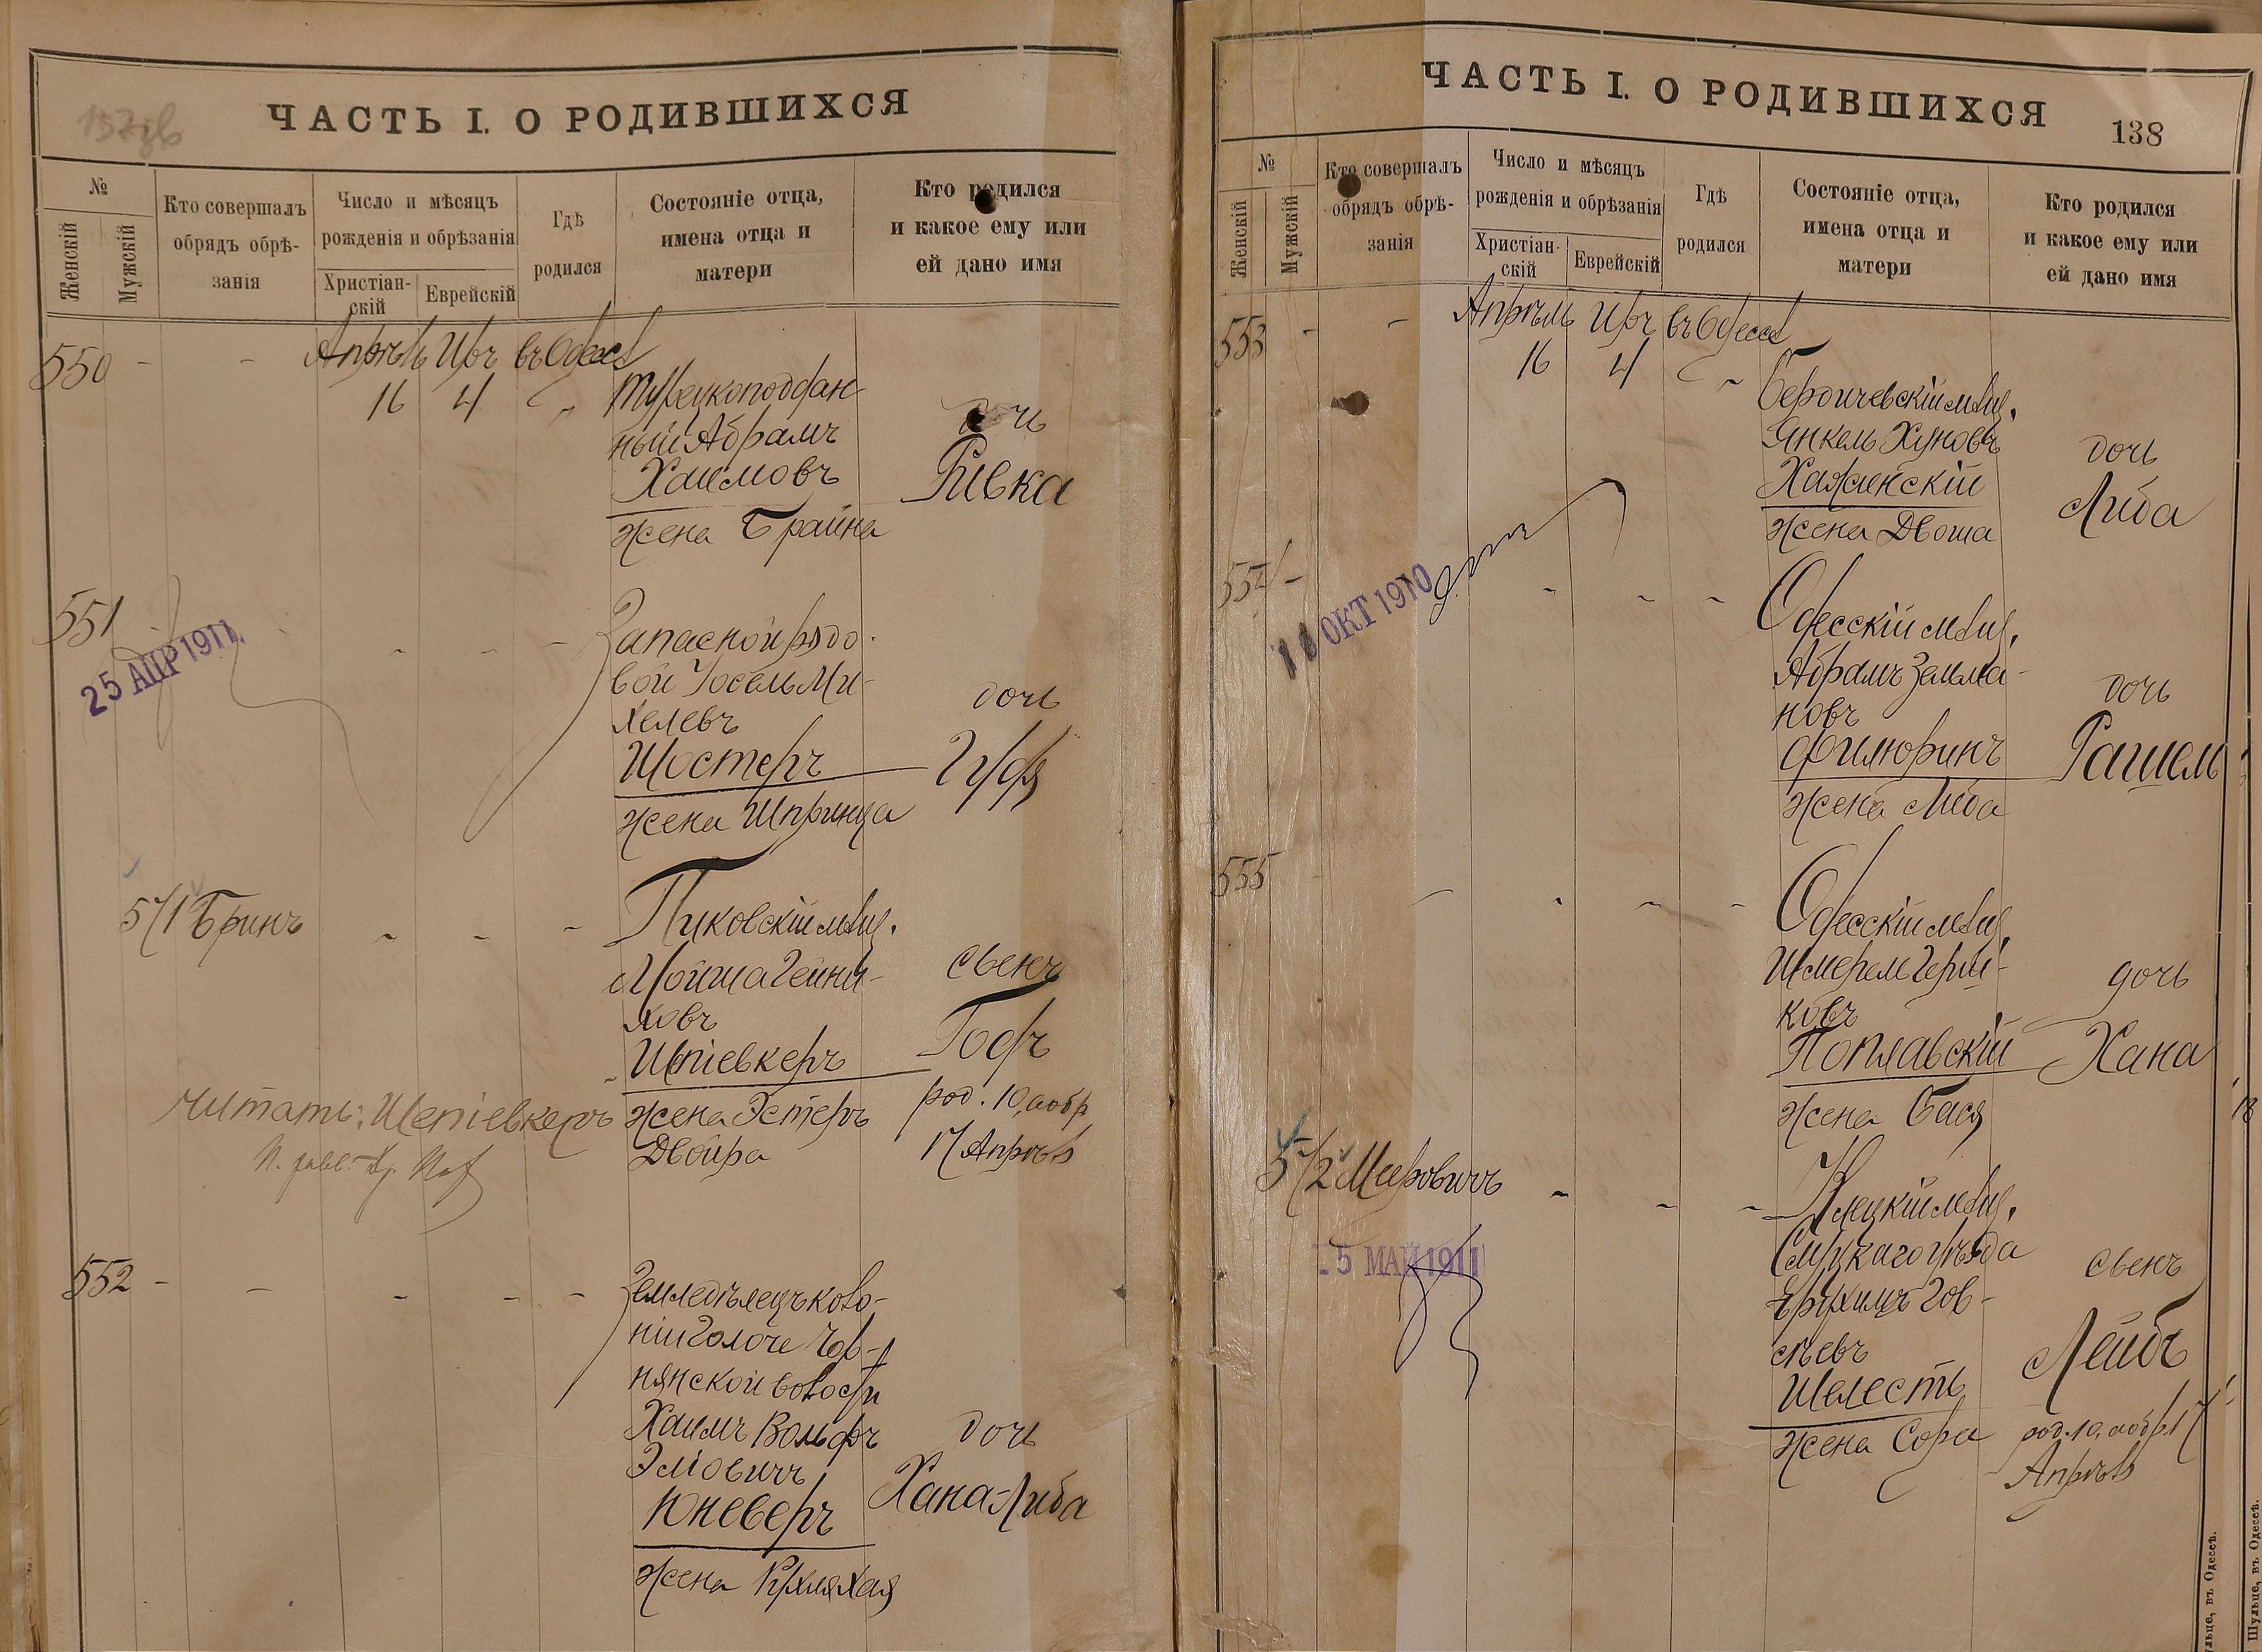 ЧАСТЬ I. О РОДИВШИХСЯ
№
Женскій
Мужскій
Кто совершалъ
обрядъ обрѣ-
занія
Число и мѣсяцъ
рожденія и обрѣзанія
Христіан-
скій
Еврейскій
Гдѣ
родился
Состояніе отца,
имена отца и
матери
Кто родился
и какое ему или
ей дано имя
550 - - Апрѣль Иръ въ Одессѣ
16 4 "
Турецкоподдан-
ный Абрамъ
Хаимовъ
жена Брайна
дочь
Ривка
551
25 АПР 1911
Запасной рядо-
вой Іосель Ми-
хелевъ
Шостеръ
жена Шпринца
дочь
571 Бринъ
Пиковскій мѣщ.
Мойша Гейни-
ховъ
Шпіевкеръ
жена Эстеръ
Двойра
свенъ
Іосъ
род. 10, а обр
17 Апрѣля
читать: Шепіевкеръ
552 -
Земледѣлецъ коло-
ніи
нянской волости
Хаимъ Вольфъ
Эліовичъ
Юневеръ
жена Рухля Хая
дочь
Хана-Либа
ЧАСТЬ I. О РОДИВШИХСЯ
138
№
Женскій
Мужскій
Кто совершалъ
обрядъ обрѣ-
занія
Число и мѣсяцъ
рожденія и обрѣзанія
Христіан-
скій
Еврейскій
Гдѣ
родился
Состояніе отца,
имена отца и
матери
Кто родился
и какое ему или
ей дано имя
553 - - Апрѣль Иръ въ Одессѣ
16 4 "
Бердичевскій мѣщ.
Янкель Хуновъ
Хаженскій
жена Двоша
дочь
Либа
554 -
11 ОКТ 1910
Одесскій мѣщ.
Абрамъ Зельма-
новъ
Филюринъ
жена Либа
дочь
Рашель
555
Одесскій мѣщ.
Шмерел Герш-
ковъ
Поплавскій
жена Бася
дочь
Хана
572 Мировичъ
5 МАЙ 1911
Клецкій мѣщ.
Слуцкаго уѣзда
Ерухимъ Гов-
сѣевъ
Шелесть
жена Сора
свенъ
Лейбъ
род. 10, а обр 17
Апрѣля
ульце, въ Одессѣ.
Шульце, въ Одессѣ.